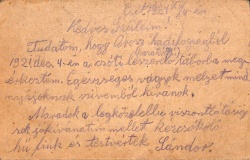 Kedves Szüleim.
Tudatom, hogy Orosz hadifogságból
1921 dec 4-én a csóti leszerelő táborba meg
érkeztem. Egészséges vagyok melyet mind
nyájoknak szívemből kívánok.
Maradok a legközelebbi viszontlátásig
sok jó kívánatim mellett
hű fiuk és testvérük Sándor.